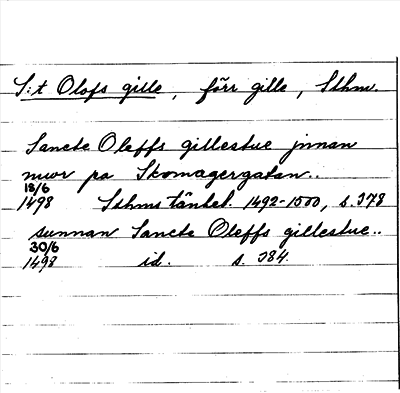 S:t Olofs gille, förr gille, Sthm.
Sancte Oleffs gillestue jnnan
mwr pa Skomagergatan..
18/6
1498 Sthms tänkeb. 1492-1500, s. 378
sunnan Sancte Oleffs gillestue..
30/6
1498 id. s. 384.